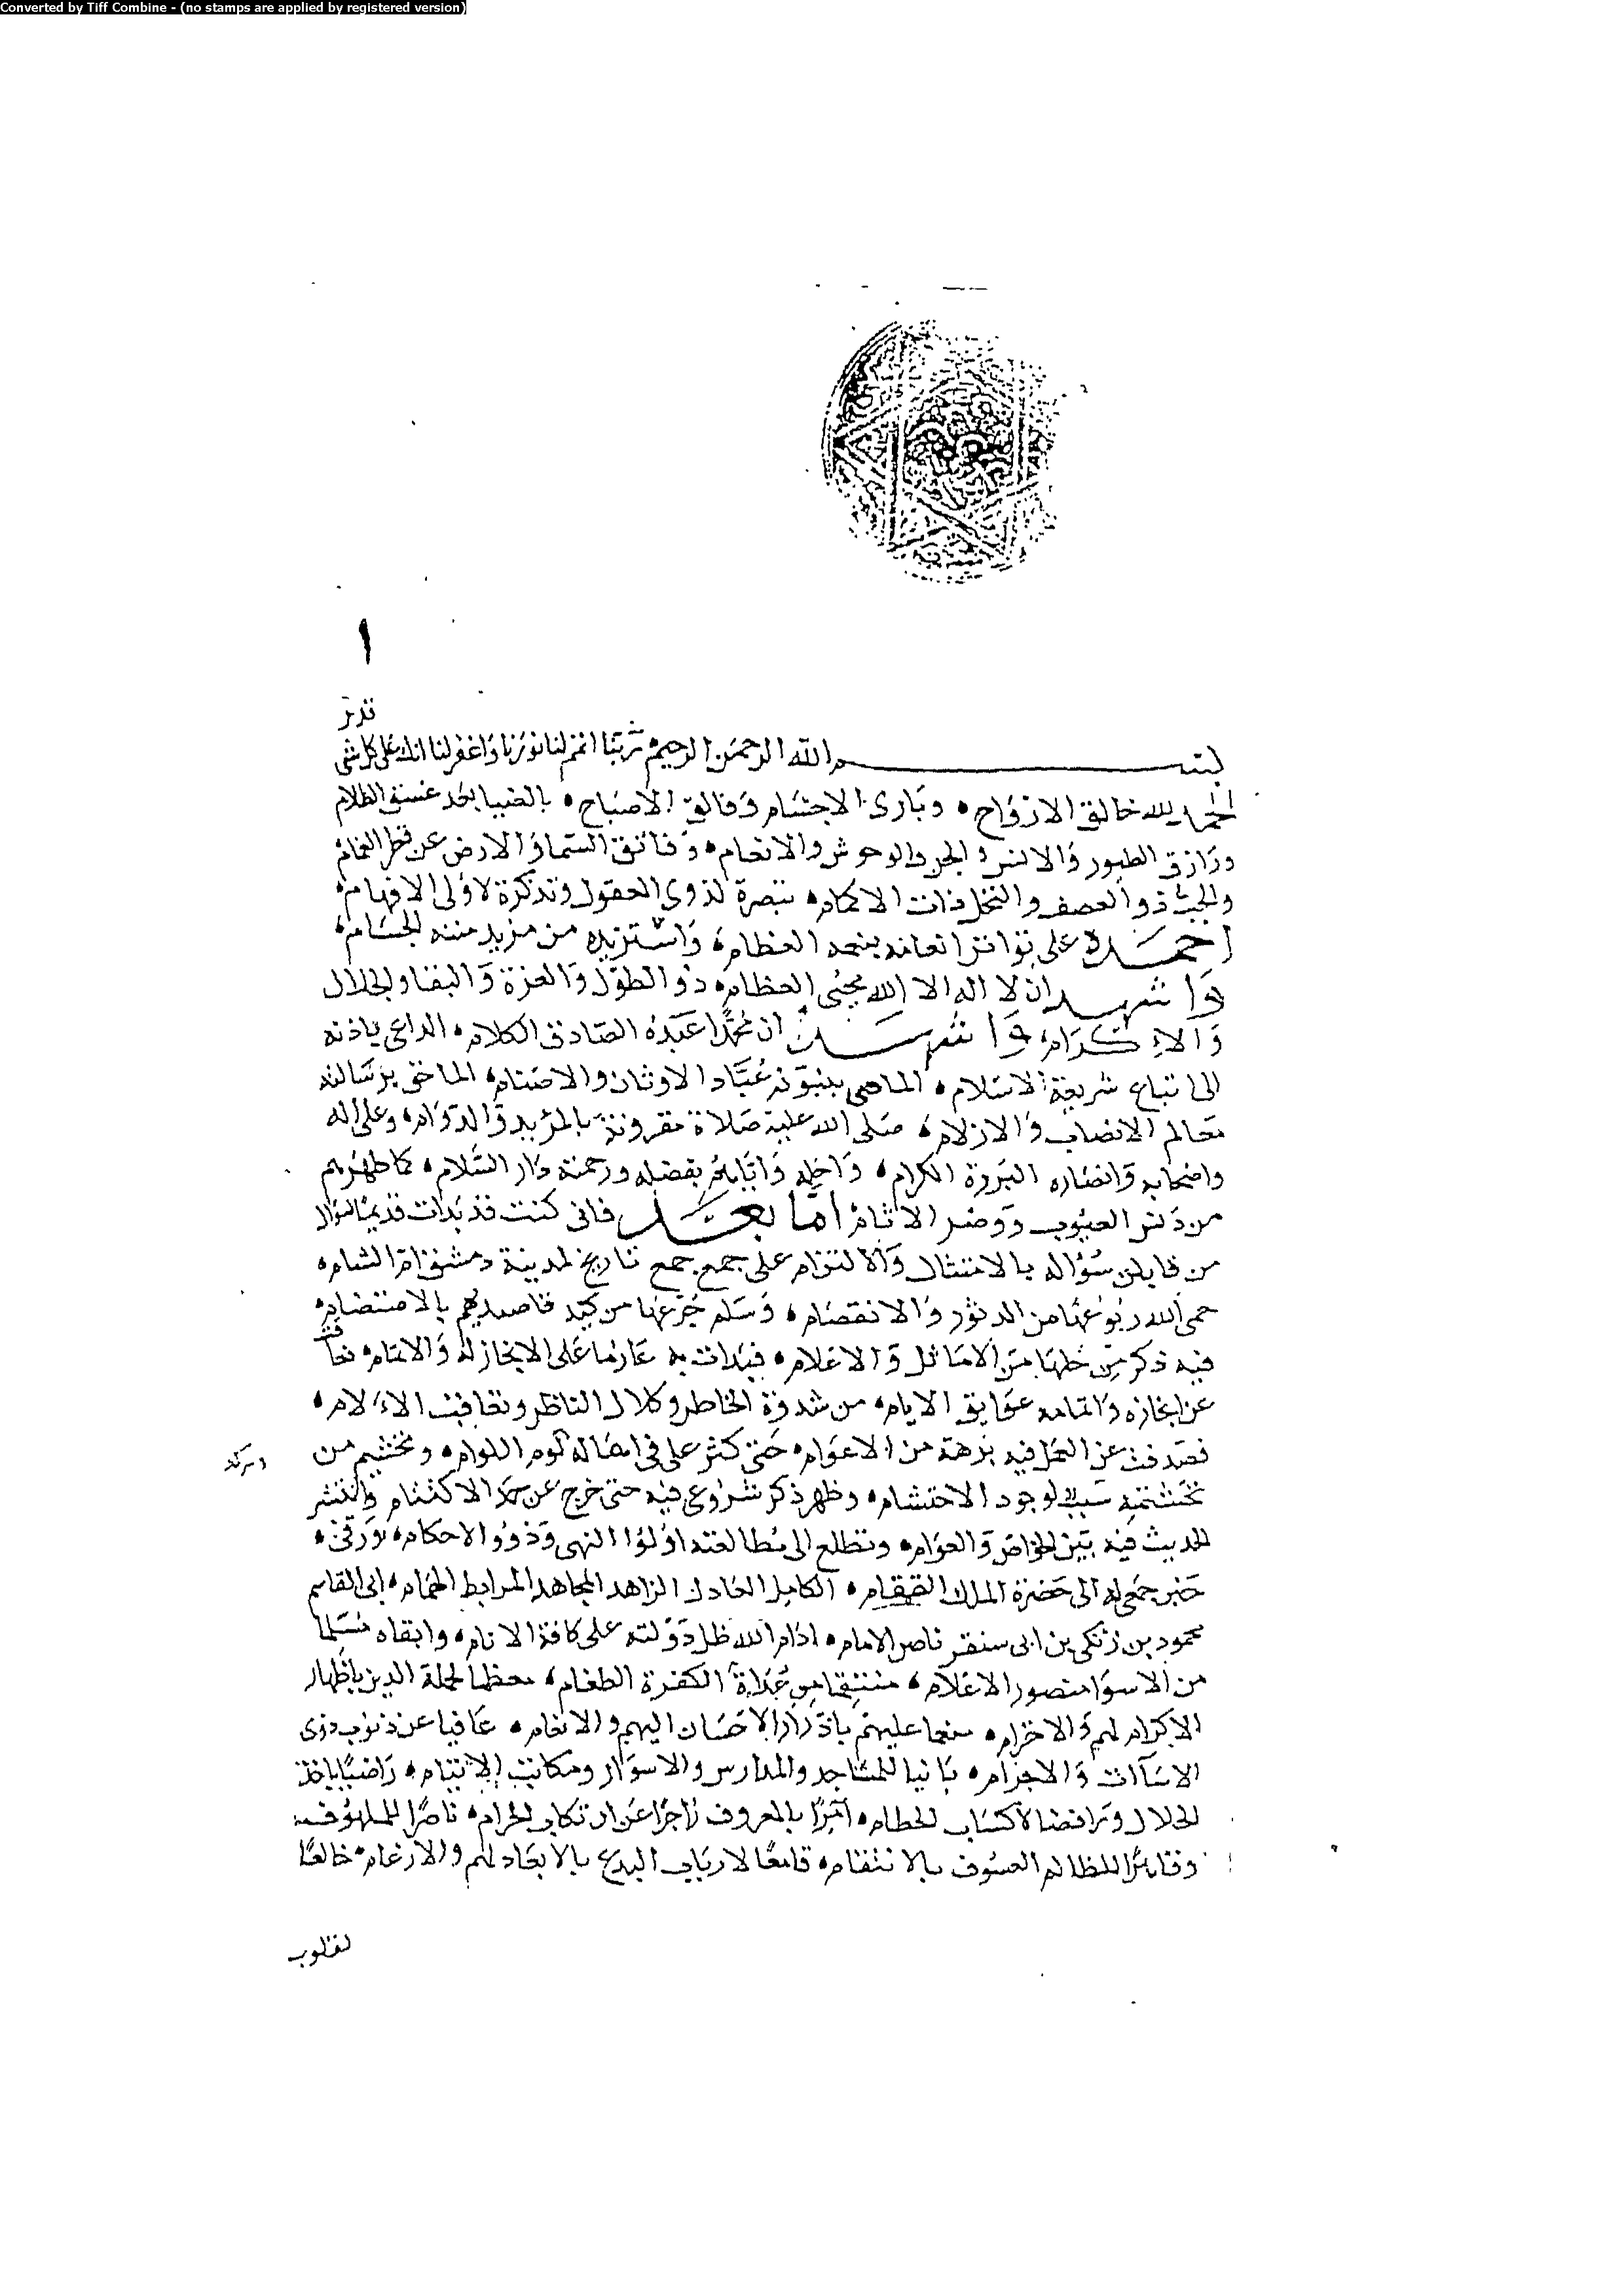 Converted by Tiff Combine - (no stamps are applied by registered version)
١
قدير
بسم الله الرحمن الرحيم ربنا اتمم لنا نورنا واغفر لنا انك على كل شى
الحمد لله خالق الارواح وبارى الاجسام وفالق الاصباح بالضيا بعد غسق الظلام
ورازق الطيور والانس والجن والوحوش والانعام وفاتق السما والارض عن قطر الغمام
والحب ذو العصف والنخل ذات الاكمام تبصرة لذوى العقول وتذكرة لاولى الافهام
احمده على تواتر انعامه بنعمه العظام واستزيده من مزيد مننه الجسام
واشهد ان لا اله الا الله محيى العظام ذو الطول والعزة والبقا والجلال
والاكرام واشهد ان محمدا عبده الصادق الكلام الداعى باذنه
الى اتباع شريعة الاسلام الماحى بنبوته عباد الاوثان والاصنام الماحق برسالته
معالم الانصاب والازلام صلى الله عليه صلاة مقرونة بالمزيد والدوام وعلى اله
واصحابه وانصاره البررة الكرام واحله واياهم بفضله ورحمته دار السلام كما طهرهم
من دنس العيوب ووضر الاثام اما بعد فانى كنت قد بدات قديما لسوال
من قابلت سؤاله بالامتثال والالتزام على جمع تاريخ لمدينة دمشق ام الشام
حمى الله ربوعها من الدثور والانفصام وسلم جرعها من كيد قاصديهم بالاهتضام
فيه ذكر من حلها من الاماثل والاعلام فبدات به عازما على الانجاز له والاتمام فعاقت
عن انجازه واتمامه عوايق الايام من شدوة الخاطر وكلال الناظر وتعاقب الالام
فصدفت عن العمل فيه برهة من الاعوام حتى كثر على فى اهماله لوم اللوام وتحشيم من
تحشمه سبب لوجود الاحتشام وظهر ذكر شروعى فيه حتى خرج عن حد الاكتتام وانتشر
الحديث فيه بين الخواص والعوام وتطلع الى مطالعته اولوا النهى وذووا الاحكام ورقى
خبر جمعى له الى حضرة الملك القمقام الكامل العادل الزاهد المجاهد المرابط الهمام ابى القاسم
محمود بن زنكى بن اق سنقر ناصر الامام ادام الله ظل دولته على كافة الانام وابقاه مسلما
من الاسوا منصور الاعلام منتقما من عداة الكفرة الطغام معظما لحملة الدين باظهار
الاكرام لهم والاحترام منعما عليهم بادرار الاحسان اليهم والانعام عافيا عن ذنوب ذوى
الاساآت والاجرام بانيا للمساجد والمدارس والاسوار ومكاتب الايتام راضيا باخذ
الحلال ورافضا لاكتساب الحطام آمرا بالمعروف زاجرا عن ارتكاب الحرام ناصرا للملهوف
وقاهرا للظالم العسوف بالانتقام قامعا لارباب البدع بالابعاد لهم والارغام خالعا
لقلوب